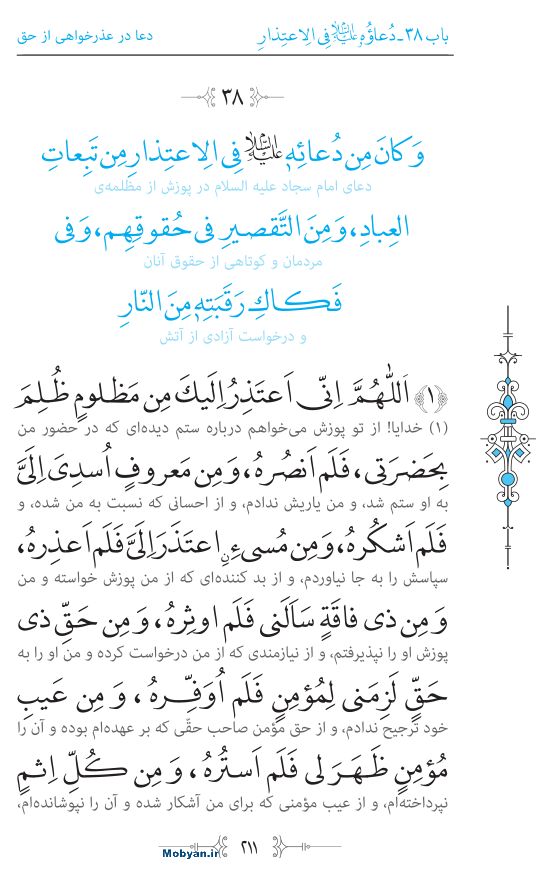 باب ۳۸ـ دُعاؤُهُ عليه‌السلام فِی الِاعتِذارِ
دعا در عذرخواهی از حق
۳۸
وَ کانَ مِن دُعائِهِ عليه‌السلام فِی الِاعتِذارِ مِن تَبِعاتِ
دعای امام سجاد علیه السلام در پوزش از مظلمه‌ی
العِبادِ، وَ مِنَ التَّقصیرِ فی حُقوقِهِم، وَ فی
مردمان و کوتاهی از حقوق آنان
فَکاكِ رَقَبَتِهٖ مِنَ النّارِ
و درخواست آزادی از آتش
﴿۱﴾ اَللّٰهُمَّ اِنّی اَعتَذِرُ اِلَیكَ مِن مَظلومٍ ظُلِمَ
(۱) خدایا! از تو پوزش می‌خواهم درباره ستم دیده‌ای که در حضور من
بِحَضرَتی، فَلَم اَنصُرهُ، وَ مِن مَعروفٍ اُسدِیَ اِلَیَّ
به او ستم شد، و من یاریش ندادم، و از احسانی که نسبت به من شده، و
فَلَم اَشکُرهُ، وَ مِن مُسیءٍ اِعتَذَرَ اِلَیَّ فَلَم اَعذِرهُ،
سپاسش را به جا نیاوردم، و از بد کننده‌ای که از من پوزش خواسته و من
وَ مِن ذی فاقَةٍ سَاَلَنی فَلَم اوثِرهُ، وَ مِن حَقِّ ذی
پوزش او را نپذیرفتم، و از نیازمندی که از من درخواست کرده و من او را به
حَقٍّ لَزِمَنی لِمُؤمِنٍ فَلَم اُوَفِّرهُ، وَ مِن عَیبِ
خود ترجیح ندادم، و از حق مؤمن صاحب حقّی که بر عهده‌ام بوده و آن را
مُؤمِنٍ ظَهَرَ لی فَلَم اَستُرهُ، وَ مِن کُلِّ اِثمٍ
نپرداخته‌ام، و از عیب مؤمنی که برای من آشکار شده و آن را نپوشانده‌ام،
۲۱۱
Mobyan.ir